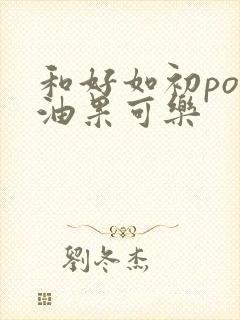 和好如初po
油果可樂
劉冬杰